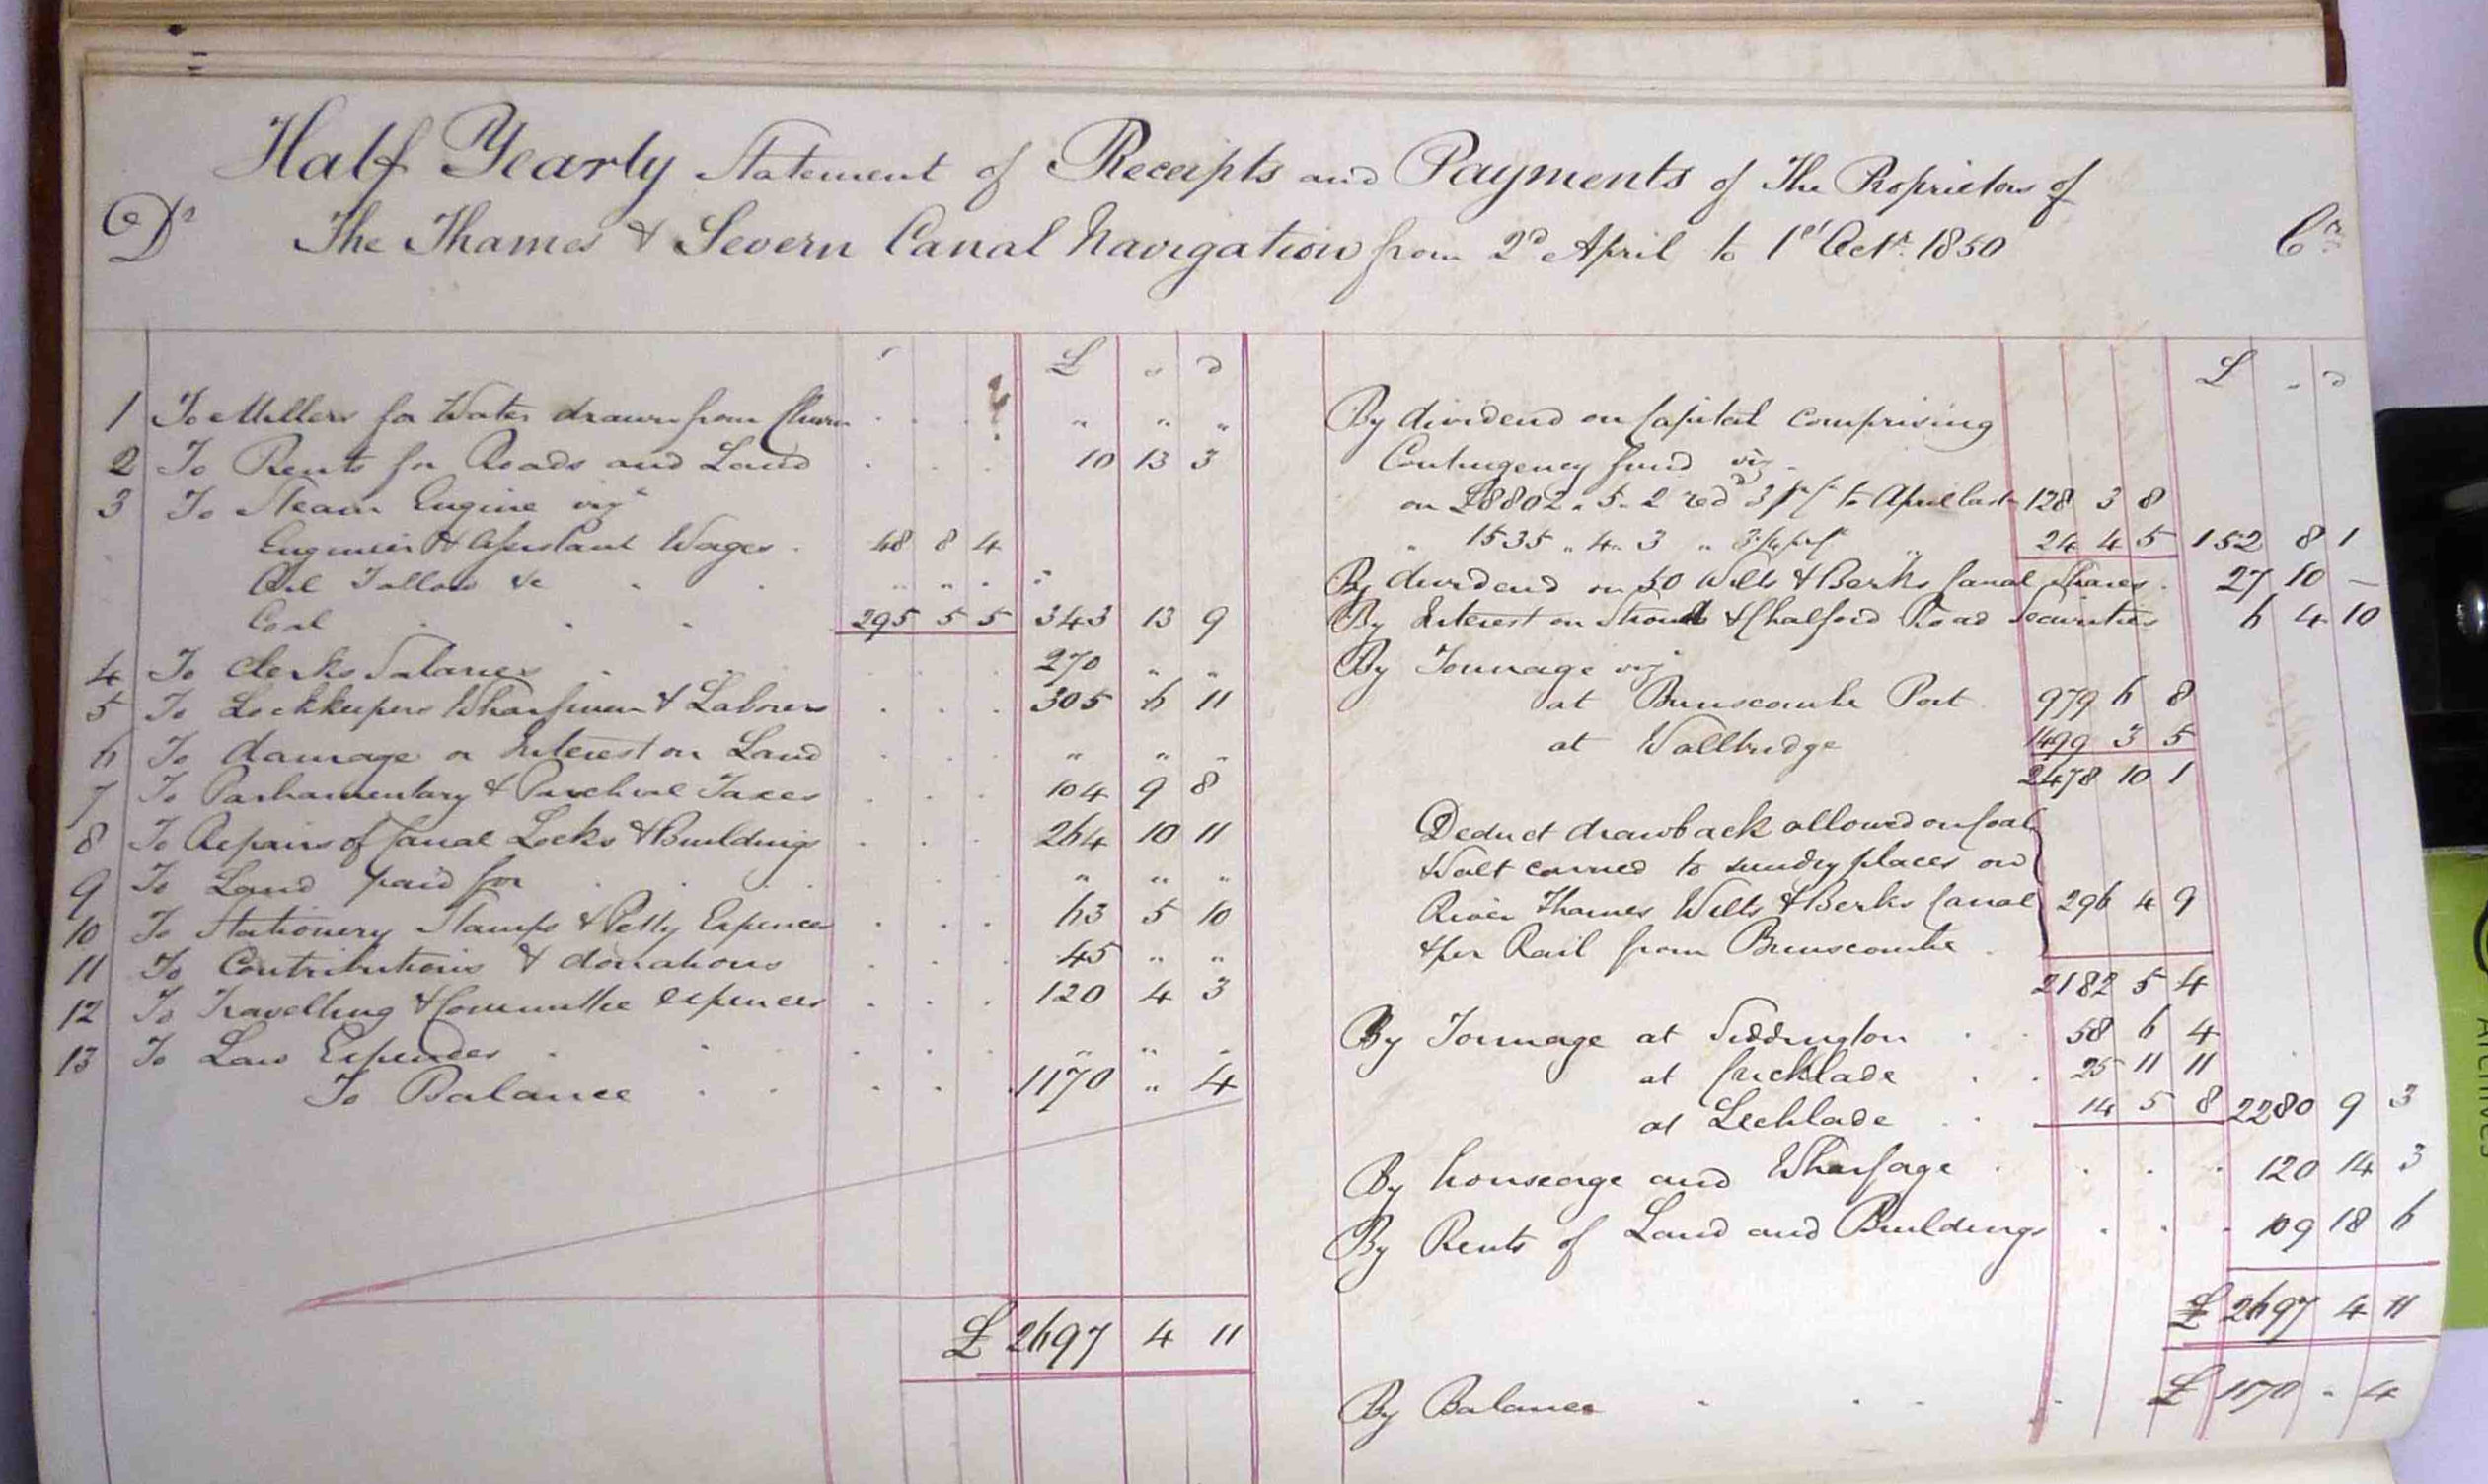 Half Yearly Statement of Receipts and Payments of The Proprietors of
Dr The Thames & Severn Canal Navigation from 2d April to 1st Octr. 1850 Cr
£ s d
1 To Millers for Water drawn from Churn " " "
2 To Rents for Roads and Land 10 13 3
3 To Steam Engine vizt
Engineer & Assistant Wages 48 8 4
Oil Tallow &c " " "
Coal 295 5 5 343 13 9
4 To Clerks Salaries 270 " "
5 To Lockkeepers Wharfinger & Laborers 305 6 11
6 To damage or Interest on Land " " "
7 To Parliamentary & Parochial Taxes 104 9 8
8 To Repairs of Canal Locks & Buildings 264 10 11
9 To Land paid for " " "
10 To Stationery Stamps & Petty Expences 63 5 10
11 To Contributions & donations 45 " "
12 To Travelling & Committee expences 120 4 3
13 To Law Expences " " "
To Balance 1170 " 4
£ 2697 4 11
£ s d
By dividend on Capital comprising
Contingency fund viz
on £8802 " 5 " 2 red 3 pCt to April last 128 3 8
" 1535 " 4 " 3 " 3¼ pCt 24 4 5 152 8 1
By dividend on 50 Wilts & Berks Canal Shares 27 10 —
By Interest on Stroud & Chalford Road Securities 6 4 10
By Tonnage viz
at Brimscombe Port 979 6 8
at Wallbridge 1499 3 5
2478 10 1
Deduct drawback allowed on Coal
& Salt carried to sundry places on
River Thames Wilts & Berks Canal 296 4 9
& per Rail from Brimscombe
2182 5 4
By Tonnage at Siddington 58 6 4
at Cricklade 25 11 11
at Lechlade 14 5 8 2280 9 3
By houseage and Wharfage 120 14 3
By Rents of Land and Buildings 109 18 6
£ 2697 4 11
By Balance £ 1170 " 4
ARCHIVES